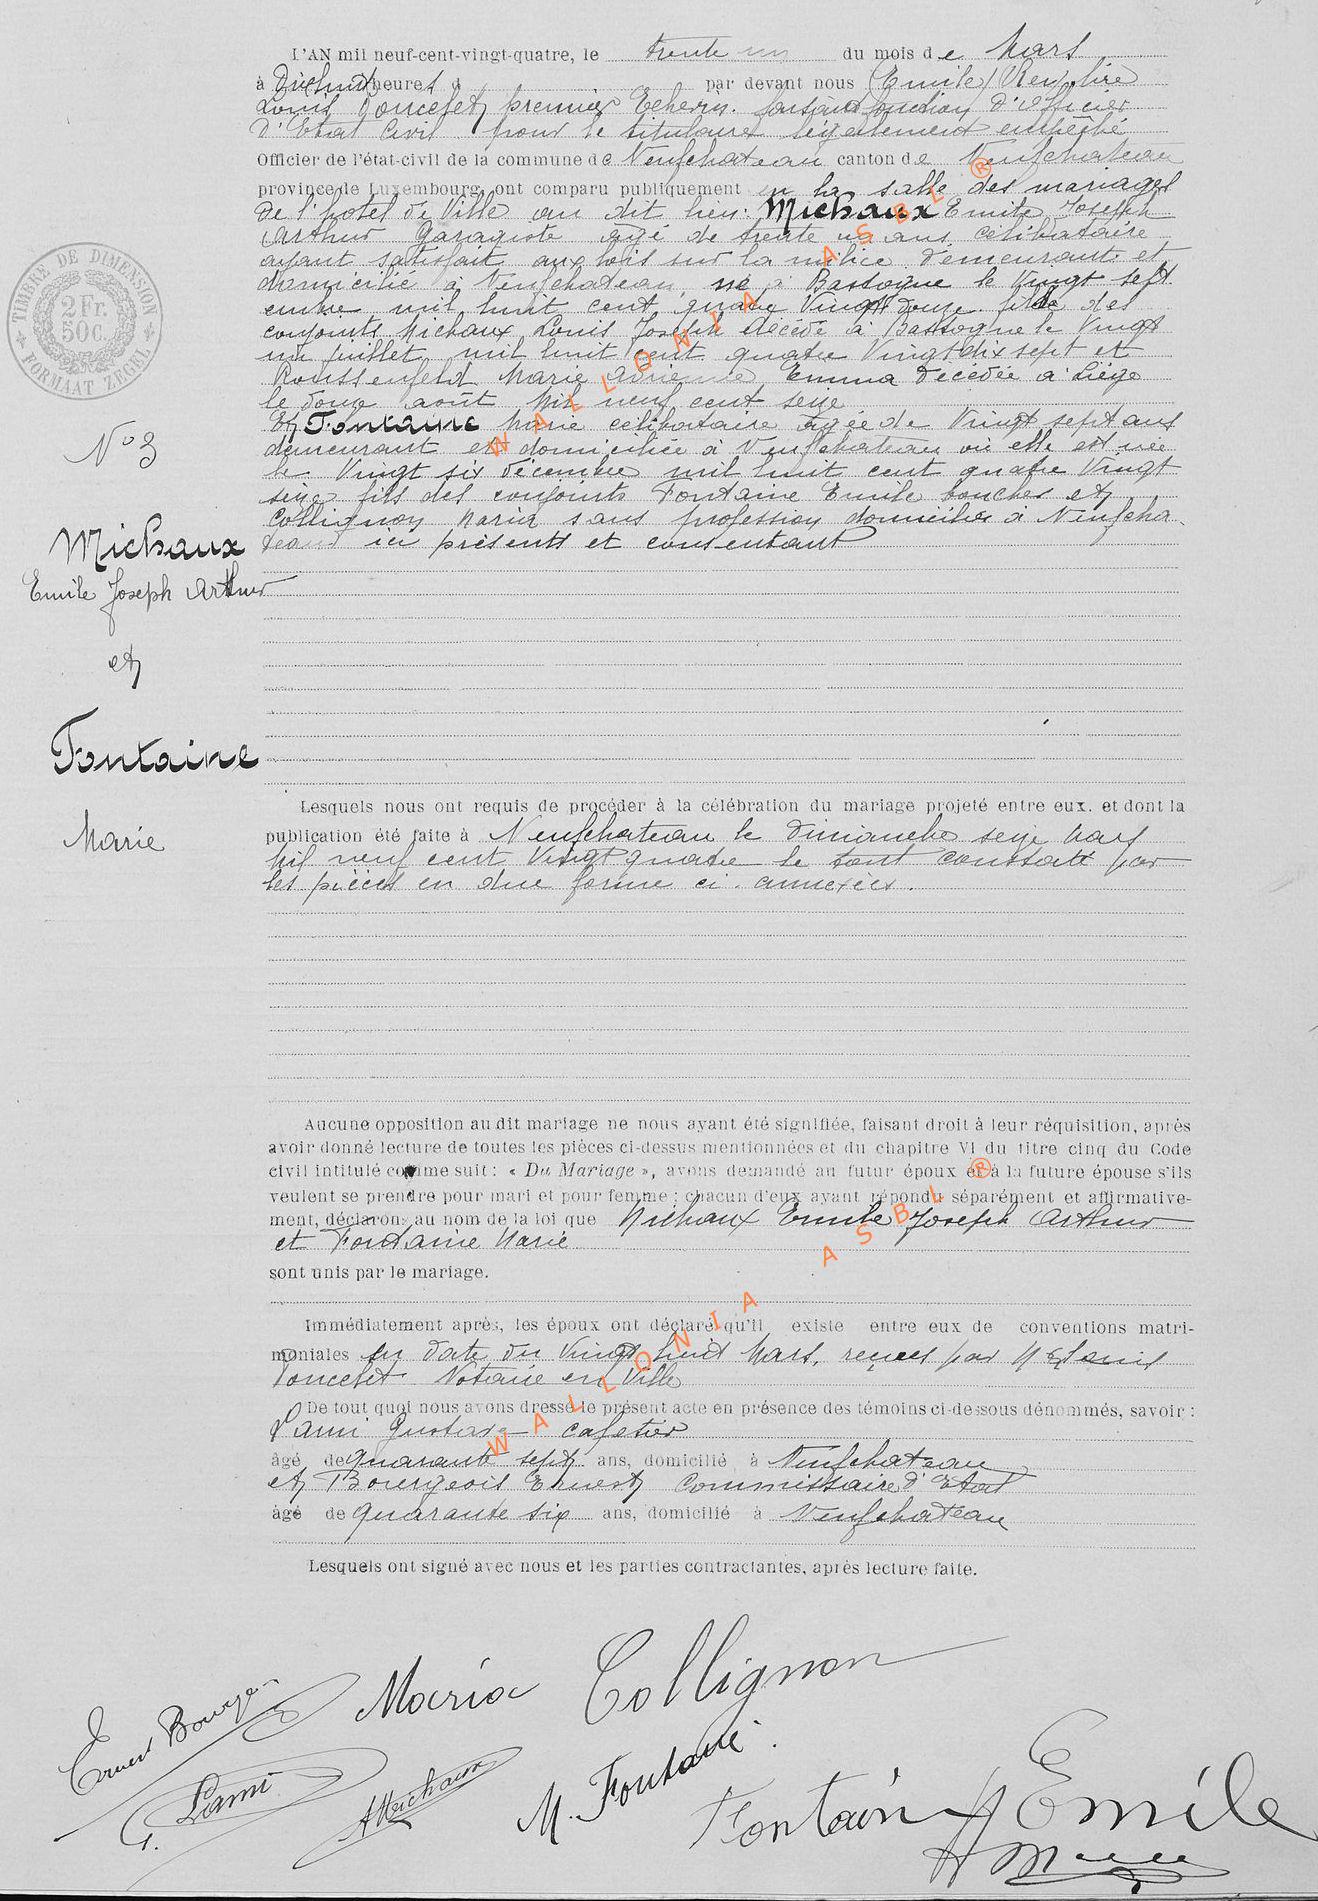 L'AN mil neuf-cent-vingt-quatre, le trente un du mois de Mars
à Dixhuit heures d par devant nous (Emile)
Louis Poncelet premier Echevin faisant fonction d'Officier
d'Etat Civil pour le titulaire légalement empêché
Officier de l'état-civil de la commune de Neufchateau canton de Neufchateau
province de Luxembourg, ont comparu publiquement en la salle des mariages
de l'hotel de Ville au dit lieu: Michaux Emile Joseph
Arthur Garagiste agé de trente un ans célibataire
ayant satisfait aux lois sur la milice demeurant et
domicilié à Neufchateau, né à Bastogne le Vingt sept
embre mil huit cent quatre Vingt douze fils des
conjoints Michaux Louis Joseph décédé à Bastogne le Vingt
un juillet mil huit cent quatre Vingt dix sept et
Roussenfeld Marie Adrienne Emma décédée à Liége
le douze août Mil neuf cent seize
Et Fontaine Marie célibataire agée de Vingt sept ans
demeurant et domiciliée à Neufchateau où elle est née
le Vingt six décembre mil huit cent quatre Vingt
seize fille des conjoints Fontaine Emile boucher et
Collignon Maria sans profession domiciliés à Neufcha
teau ici présents et consentant
TIMBRE DE DIMENSION
2 Fr.
50c.
FORMAAT ZEGEL
N° 3
Michaux
Emile Joseph Arthur
et
Fontaine
Marie
Lesquels nous ont requis de procéder à la célébration du mariage projeté entre eux. et dont la
publication été faite à Neufchateau le dimanche seize Mars
Mil neuf cent Vingt quatre le tout constaté par
les pièces en due forme ci-annexées.
Aucune opposition au dit mariage ne nous ayant été signifiée, faisant droit à leur réquisition, après
avoir donné lecture de toutes les pièces ci-dessus mentionnées et du chapitre VI du titre cinq du Code
civil intitulé comme suit : « Du Mariage », avons demandé au futur époux et à la future épouse s'ils
veulent se prendre pour mari et pour femme ; chacun d'eux ayant répondu séparément et affirmative-
ment, déclarons au nom de la loi que Michaux Emile Joseph Arthur
et Fontaine Marie
sont unis par le mariage.
Immédiatement après, les époux ont déclaré qu'il existe entre eux de conventions matri-
moniales en date du Vingt huit Mars, reçues par Me Louis
Poncelet Notaire en Ville
De tout quoi nous avons dressé le présent acte en présence des témoins ci-dessous dénommés, savoir :
Lami Gustave cafetier
âgé de quarante sept ans, domicilié à Neufchateau
et Bourgeois Ernest Commissaire d'Etat
âgé de quarante six ans, domicilié à Neufchateau
Lesquels ont signé avec nous et les parties contractantes, après lecture faite.
Maria Collignon
Ernest Bourgeois
G. Lami
A Michaux
M. Fontaine.
Fontaine Emile
WALLONIA ASBL ®
WALLONIA ASBL ®